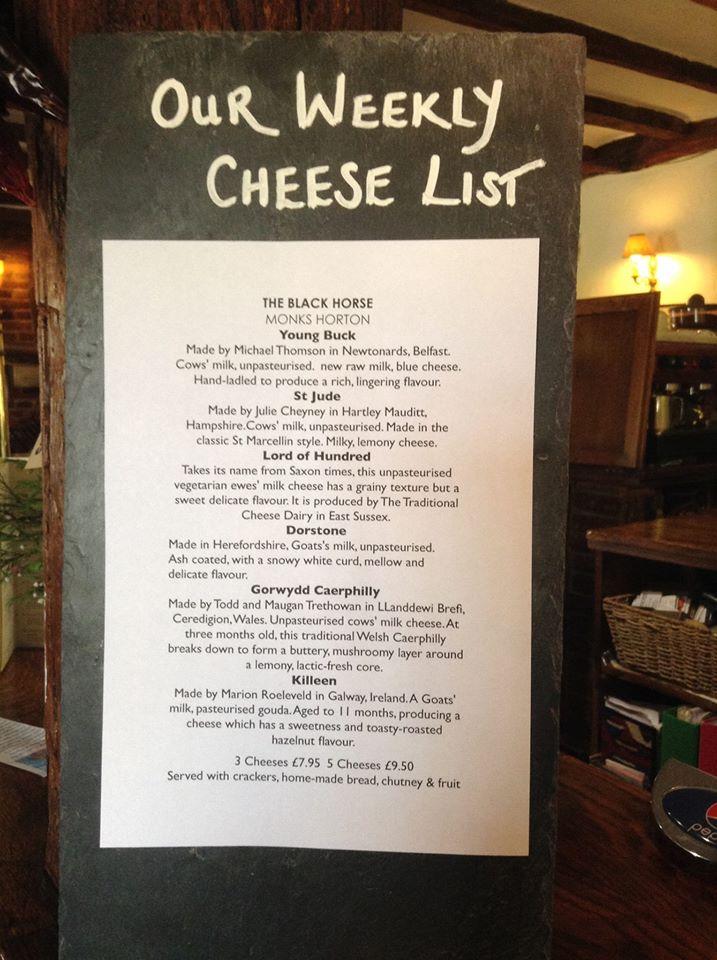 OUR WEEKLY
CHEESE LIST
THE BLACK HORSE
MONKS HORTON
Young Buck
Made by Michael Thomson in Newtonards, Belfast.
Cows' milk, unpasteurised. new raw milk, blue cheese.
Hand-ladled to produce a rich, lingering flavour.
St Jude
Made by Julie Cheyney in Hartley Mauditt,
Hampshire.Cows' milk, unpasteurised. Made in the
classic St Marcellin style. Milky, lemony cheese.
Lord of Hundred
Takes its name from Saxon times, this unpasteurised
vegetarian ewes' milk cheese has a grainy texture but a
sweet delicate flavour. It is produced by The Traditional
Cheese Dairy in East Sussex.
Dorstone
Made in Herefordshire, Goats's milk, unpasteurised.
Ash coated, with a snowy white curd, mellow and
delicate flavour.
Gorwydd Caerphilly
Made by Todd and Maugan Trethowan in LLanddewi Brefi,
Ceredigion, Wales. Unpasteurised cows' milk cheese. At
three months old, this traditional Welsh Caerphilly
breaks down to form a buttery, mushroomy layer around
a lemony, lactic-fresh core.
Killeen
Made by Marion Roeleveld in Galway, Ireland. A Goats'
milk, pasteurised gouda. Aged to 11 months, producing a
cheese which has a sweetness and toasty-roasted
hazelnut flavour.
3 Cheeses £7.95 5 Cheeses £9.50
Served with crackers, home-made bread, chutney & fruit